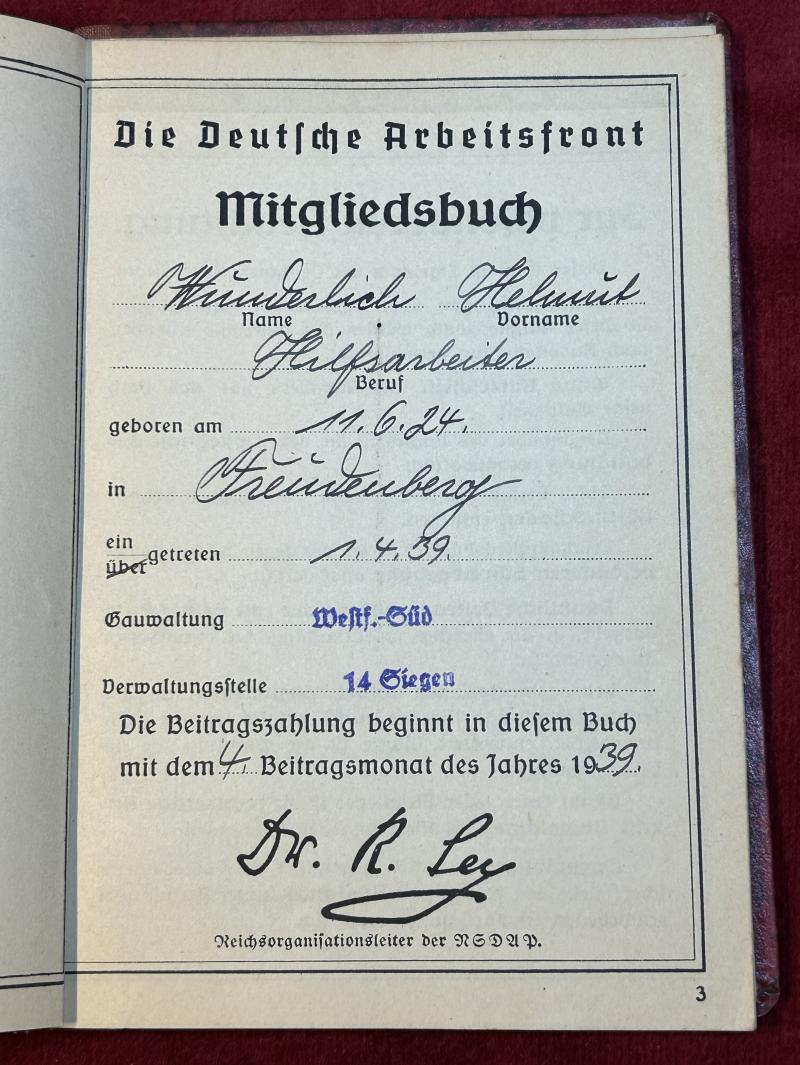 Die Deutsche Arbeitsfront
Mitgliedsbuch
Wunderlich Helmut
Name Vorname
Hilfsarbeiter
Beruf
geboren am 11.6.24.
in Freudenberg
ein
über getreten 1.4.39.
Gauwaltung Westf.-Süd
Verwaltungsstelle 14 Siegen
Die Beitragszahlung beginnt in diesem Buch
mit dem 4. Beitragsmonat des Jahres 1939.
Dr. R. Ley
Reichsorganisationsleiter der NSDAP.
3